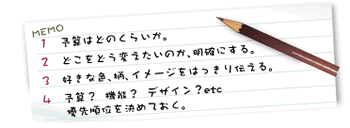 MEMO
1 予算はどのくらいか。
2 どこをどう変えたいのか、明確にする。
3 好きな色、柄、イメージをはっきり伝える。
4 予算? 機能? デザイン?etc
優先順位を決めておく。